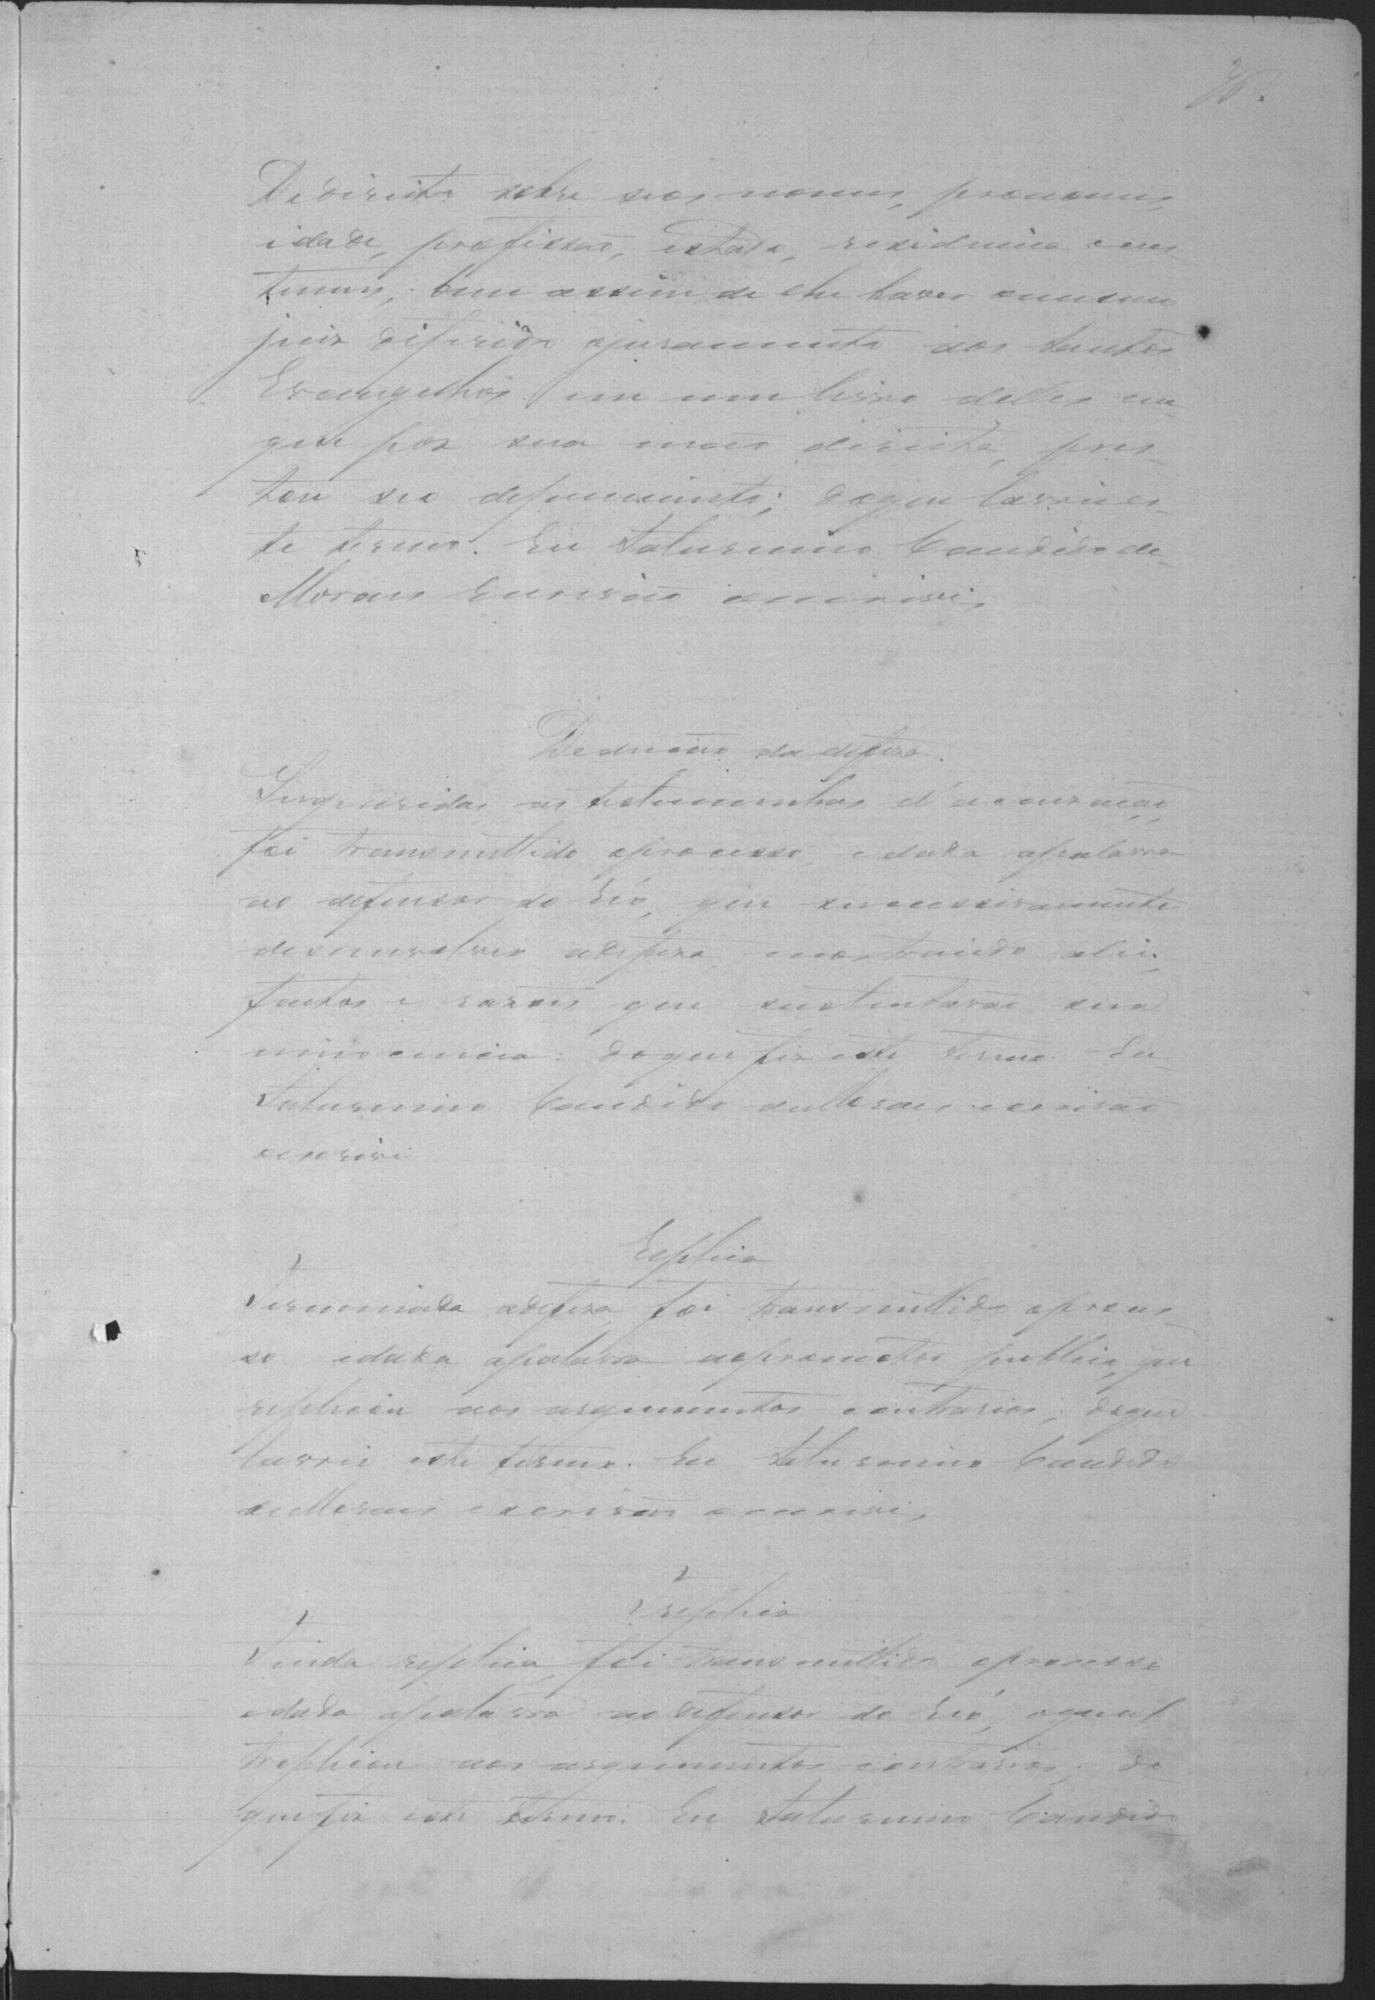 De direito sobre seos nomes, pronomes,
idade, profissão, estado, residencia e cos-
tumes; bem assim de lhe haver o mesmo
juiz diferido ojuramento aos Santos
Evangelhos em um livro delles em
que poz sua mão direita, pres-
tou seo depoimento; doque lavrei es-
te termo. Eu Saturnino Candido de
Moraes Escrivão oescrivi,
Deducção da defeza.
Inqueridas as testemunhas d'accusação,
foi transmittido oprocesso, edada apalavra
ao defensor do Réo, que successivamente
desenvolveo adefeza, mostrando a lei,
factos e rasões que sustentavão sua
innocencia: doque fiz este termo. Eu
Saturnino Candido de Moraes escrivão
oescrivi
Replica
Terminada adefeza, foi transmittido oproces-
so edada apalavra aopromotor publico, que
replicou aos argumentos contrarios; doque
lavrei este termo. Eu Saturnino Candido
de Moraes escrivão oescrivi,
Treplica
Finda replica, foi transmittido oprocesso
edada apalavra ao defensor do Réo, oqual
treplicou aos argumentos contrarios; do
que fiz este termo. Eu Saturnino Candido